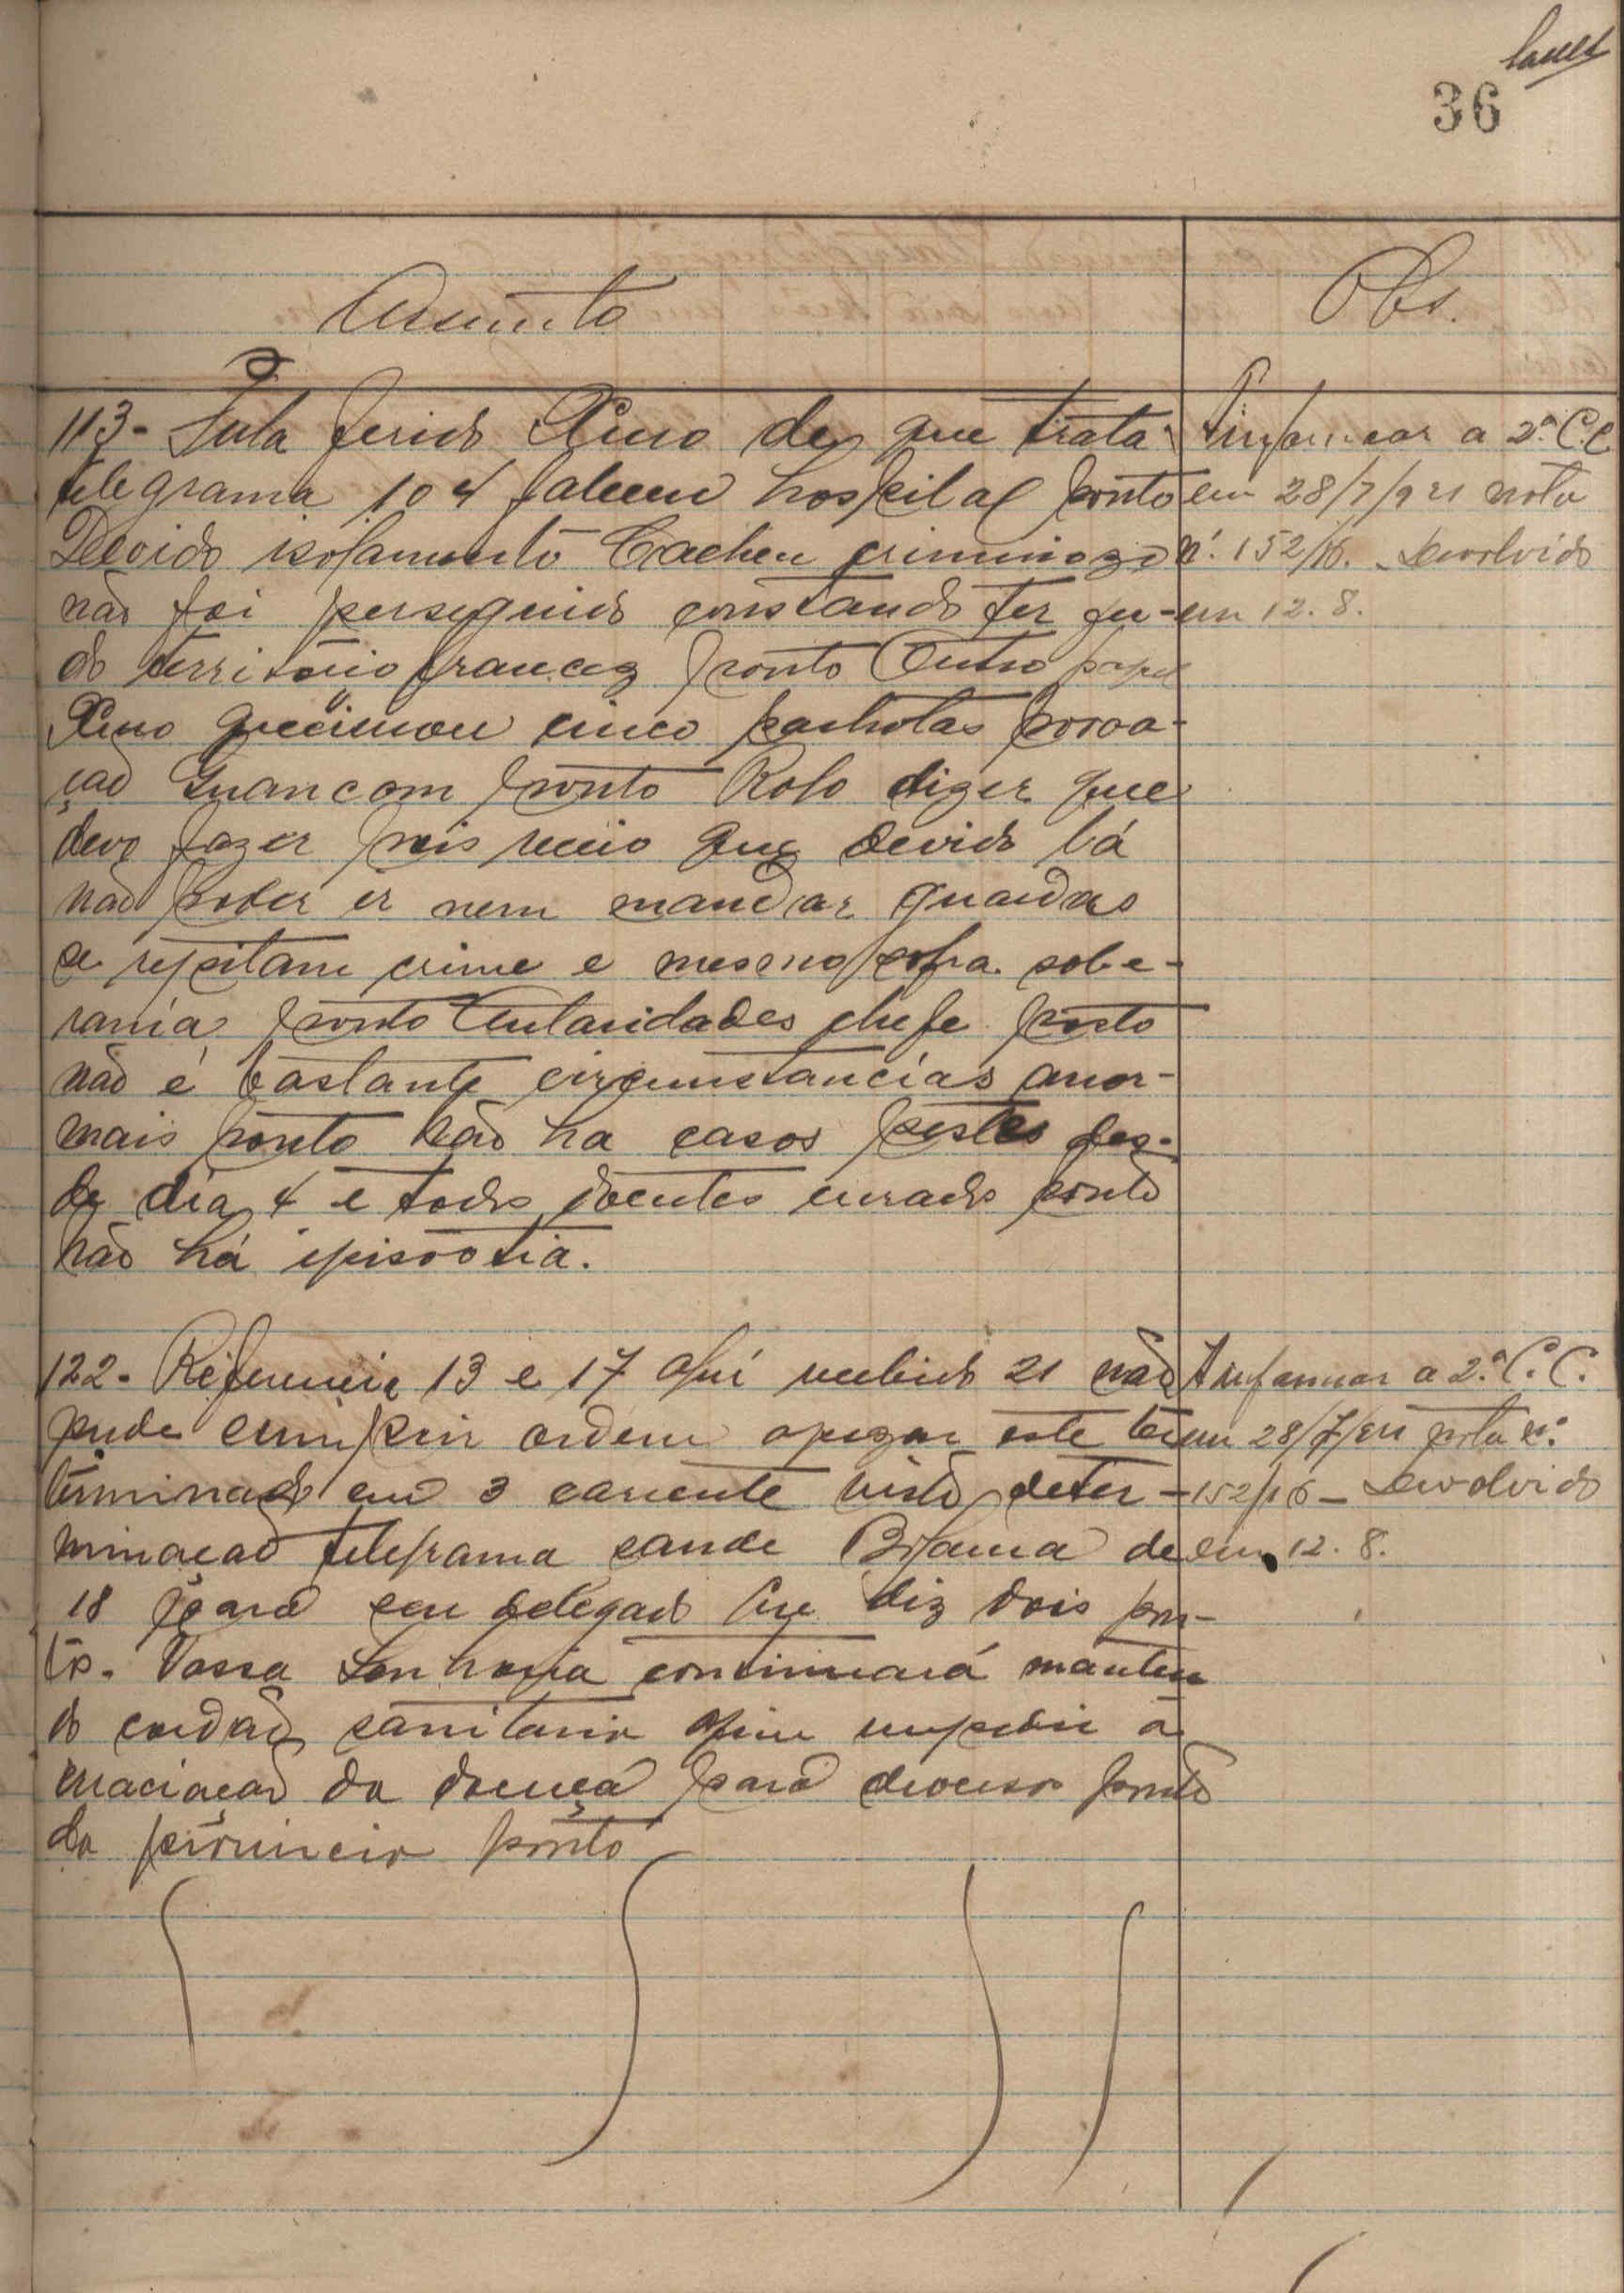 36
Assunto
Obs.
113- Fula ferido de que trata
telegrama 104 faleceu hospital ponto
Devido isolamento Cacheu criminozo
não foi perseguido constando ter fu-
do território francez ponto Outro
cinco palhotas povoa-
ção Guancom ponto Rolo dizer que
devo fazer pois receio que devido lá
não poder ir nem mandar guardas
se repitam crime e mesmo sofra sobe-
rania ponto Autoridades chefe posto
não é bastante circunstancias anor-
mais ponto Não ha casos pestes des-
de dia 4 e todos doentes curados ponto
Não há episootia.
122- Referencia 13 e 17 aqui recebido 21 não
pude cumprir ordem apezar este
terminado em 3 corrente visto deter-
minação telegrama saude Bolama de
18 para seu delegado que diz dois pon-
tos. Vossa Senhoria continuará manten
do cordão sanitario afim impedir a
da doença para diversos pontos
da provincia ponto
A informar a 2ª C. C.
em 28/7/921 nota
nº. 152/16. Devolvido
em 12.8.
A informar a 2.ª C. C.
em 28/7/921 nota nº.
152/16 - Devolvido
em 12.8.